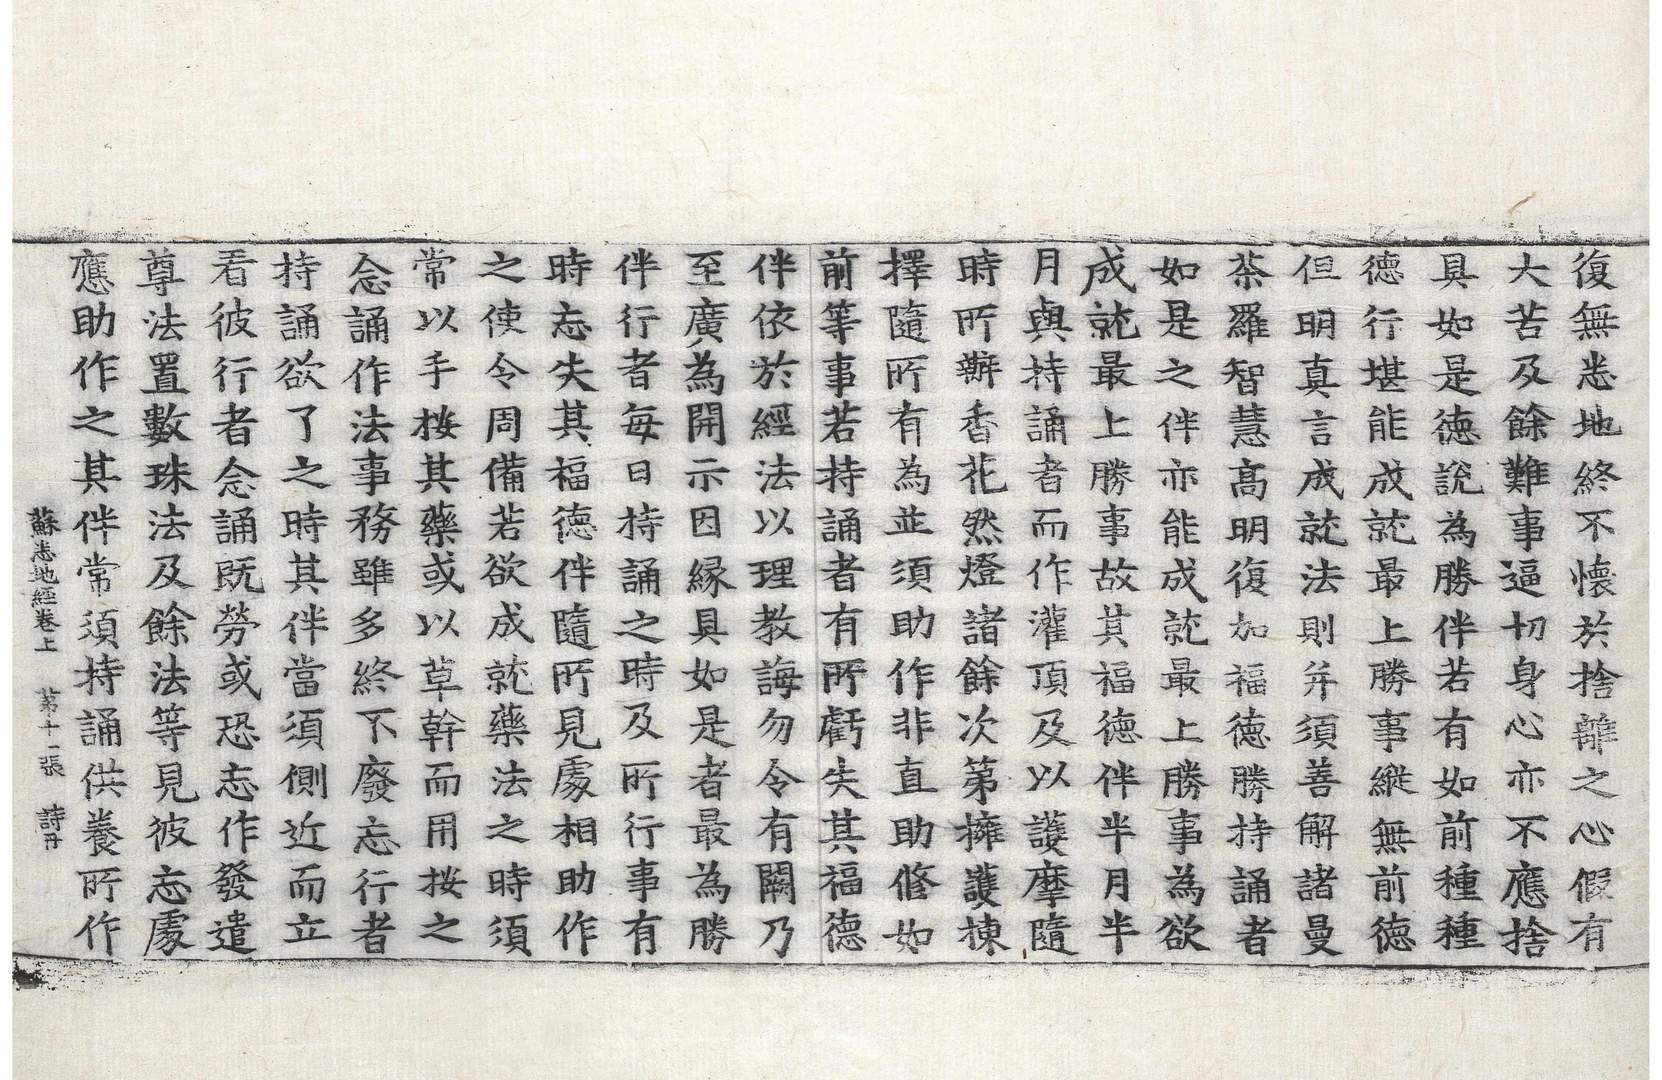 復無悉地終不懷於捨離之心假有
大苦及餘難事逼切身心亦不應捨
具如是德說為勝伴若有如前種種
德行堪能成就最上勝事縱無前德
但明真言成就法則并須善解諸曼
荼羅智慧高明復加福德勝持誦者
如是之伴亦能成就最上勝事為欲
成就最上勝事故其福德伴半月半
月與持誦者而作灌頂及以護摩隨
時所辦香花然燈諸餘次第擁護揀
擇隨所有為並須助作非直助修如
前等事若持誦者有所虧失其福德
伴依於經法以理教誨勿令有闕乃
至廣為開示因緣具如是者最為勝
伴行者每日持誦之時及所行事有
時忘失其福德伴隨所見處相助作
之使令周備若欲成就藥法之時須
常以手按其藥或以草幹而用按之
念誦作法事務雖多終不廢忘行者
持誦欲了之時其伴當須側近而立
看彼行者念誦既勞或恐忘作發遣
尊法置數珠法及餘法等見彼忘處
應助作之其伴常須持誦供養所作
蘇悉地經卷上 第十一張 詩丹